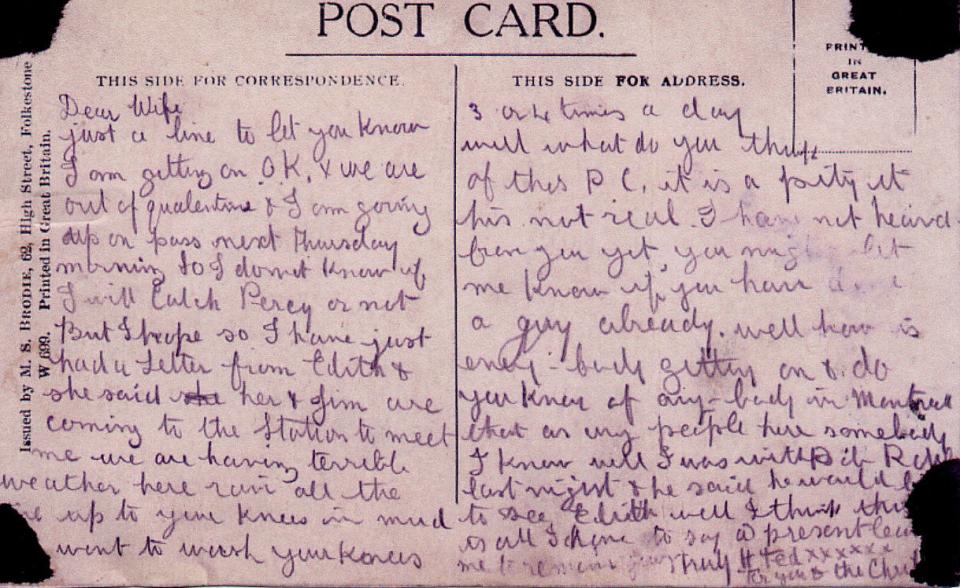 POST CARD.
THIS SIDE FOR CORRESPONDENCE.
Dear Wife
just a line to let you know
I am getting on O.K. & we are
out of qualentine & I am going
up on pass next Thursday
morning so I do not know if
I will Catch Percy or not
But I hope so I have just
had a Letter from Edith &
she said she her & Jim are
coming to the Station to meet
me we are having terrible
weather here rain all the
up to your knees in mud
want to wash your knees
THIS SIDE FOR ADDRESS.
3 or 4 times a day
well what do you think
of this P C, it is a pity it
his not real. I have not heard
from you yet, you might let
me know if you have
a guy already. well how is
every-body getting on & do
you know of any-body in Montreal
that as any people here somebody
I know well I was with
last night & he said he would
to see Edith well I think this
is all I have to say a present
me to remain yours Truly H Ted xxxxxx
for you & the
PRINTED
IN
GREAT
BRITAIN.
Issued by M. S. BRODIE, 62, High Street, Folkestone
W 699. Printed in Great Britain.